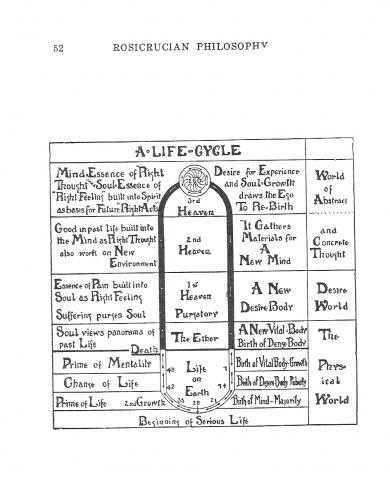 52 ROSICRUCIAN PHILOSOPHY
A LIFE-CYCLE
Mind. Essence of "Right
Thought" Soul. Essence of
"Right Feeling" built into Spirit
as basis for Future Right Acts
EGO
3rd
Heaven
Desire for Experience
and Soul-Growth
draws the Ego
To Re-Birth
World
of
Abstract
Good in past life built into
the Mind as Right Thought
also work on New
Environment
2nd
Heaven
It Gathers
Materials for
A
New Mind
and
Concrete
Thought
Essence of Pain built into
Soul as Right Feeling
Suffering purges Soul
1st
Heaven
Purgatory
A New
Desire Body
Desire
World
Soul views panorama of
past Life
Death
The Ether
A New Vital Body
Birth of Dense Body
The
Prime of Mentality
49
Life
on
Earth
7
Birth of Vital Body-Growth
Phys-
ical
Change of Life
42
14
Birth of Desire Body Puberty
Prime of Life 2nd Growth
35 28 21
Birth of Mind-Majority
World
Beginning of Serious Life